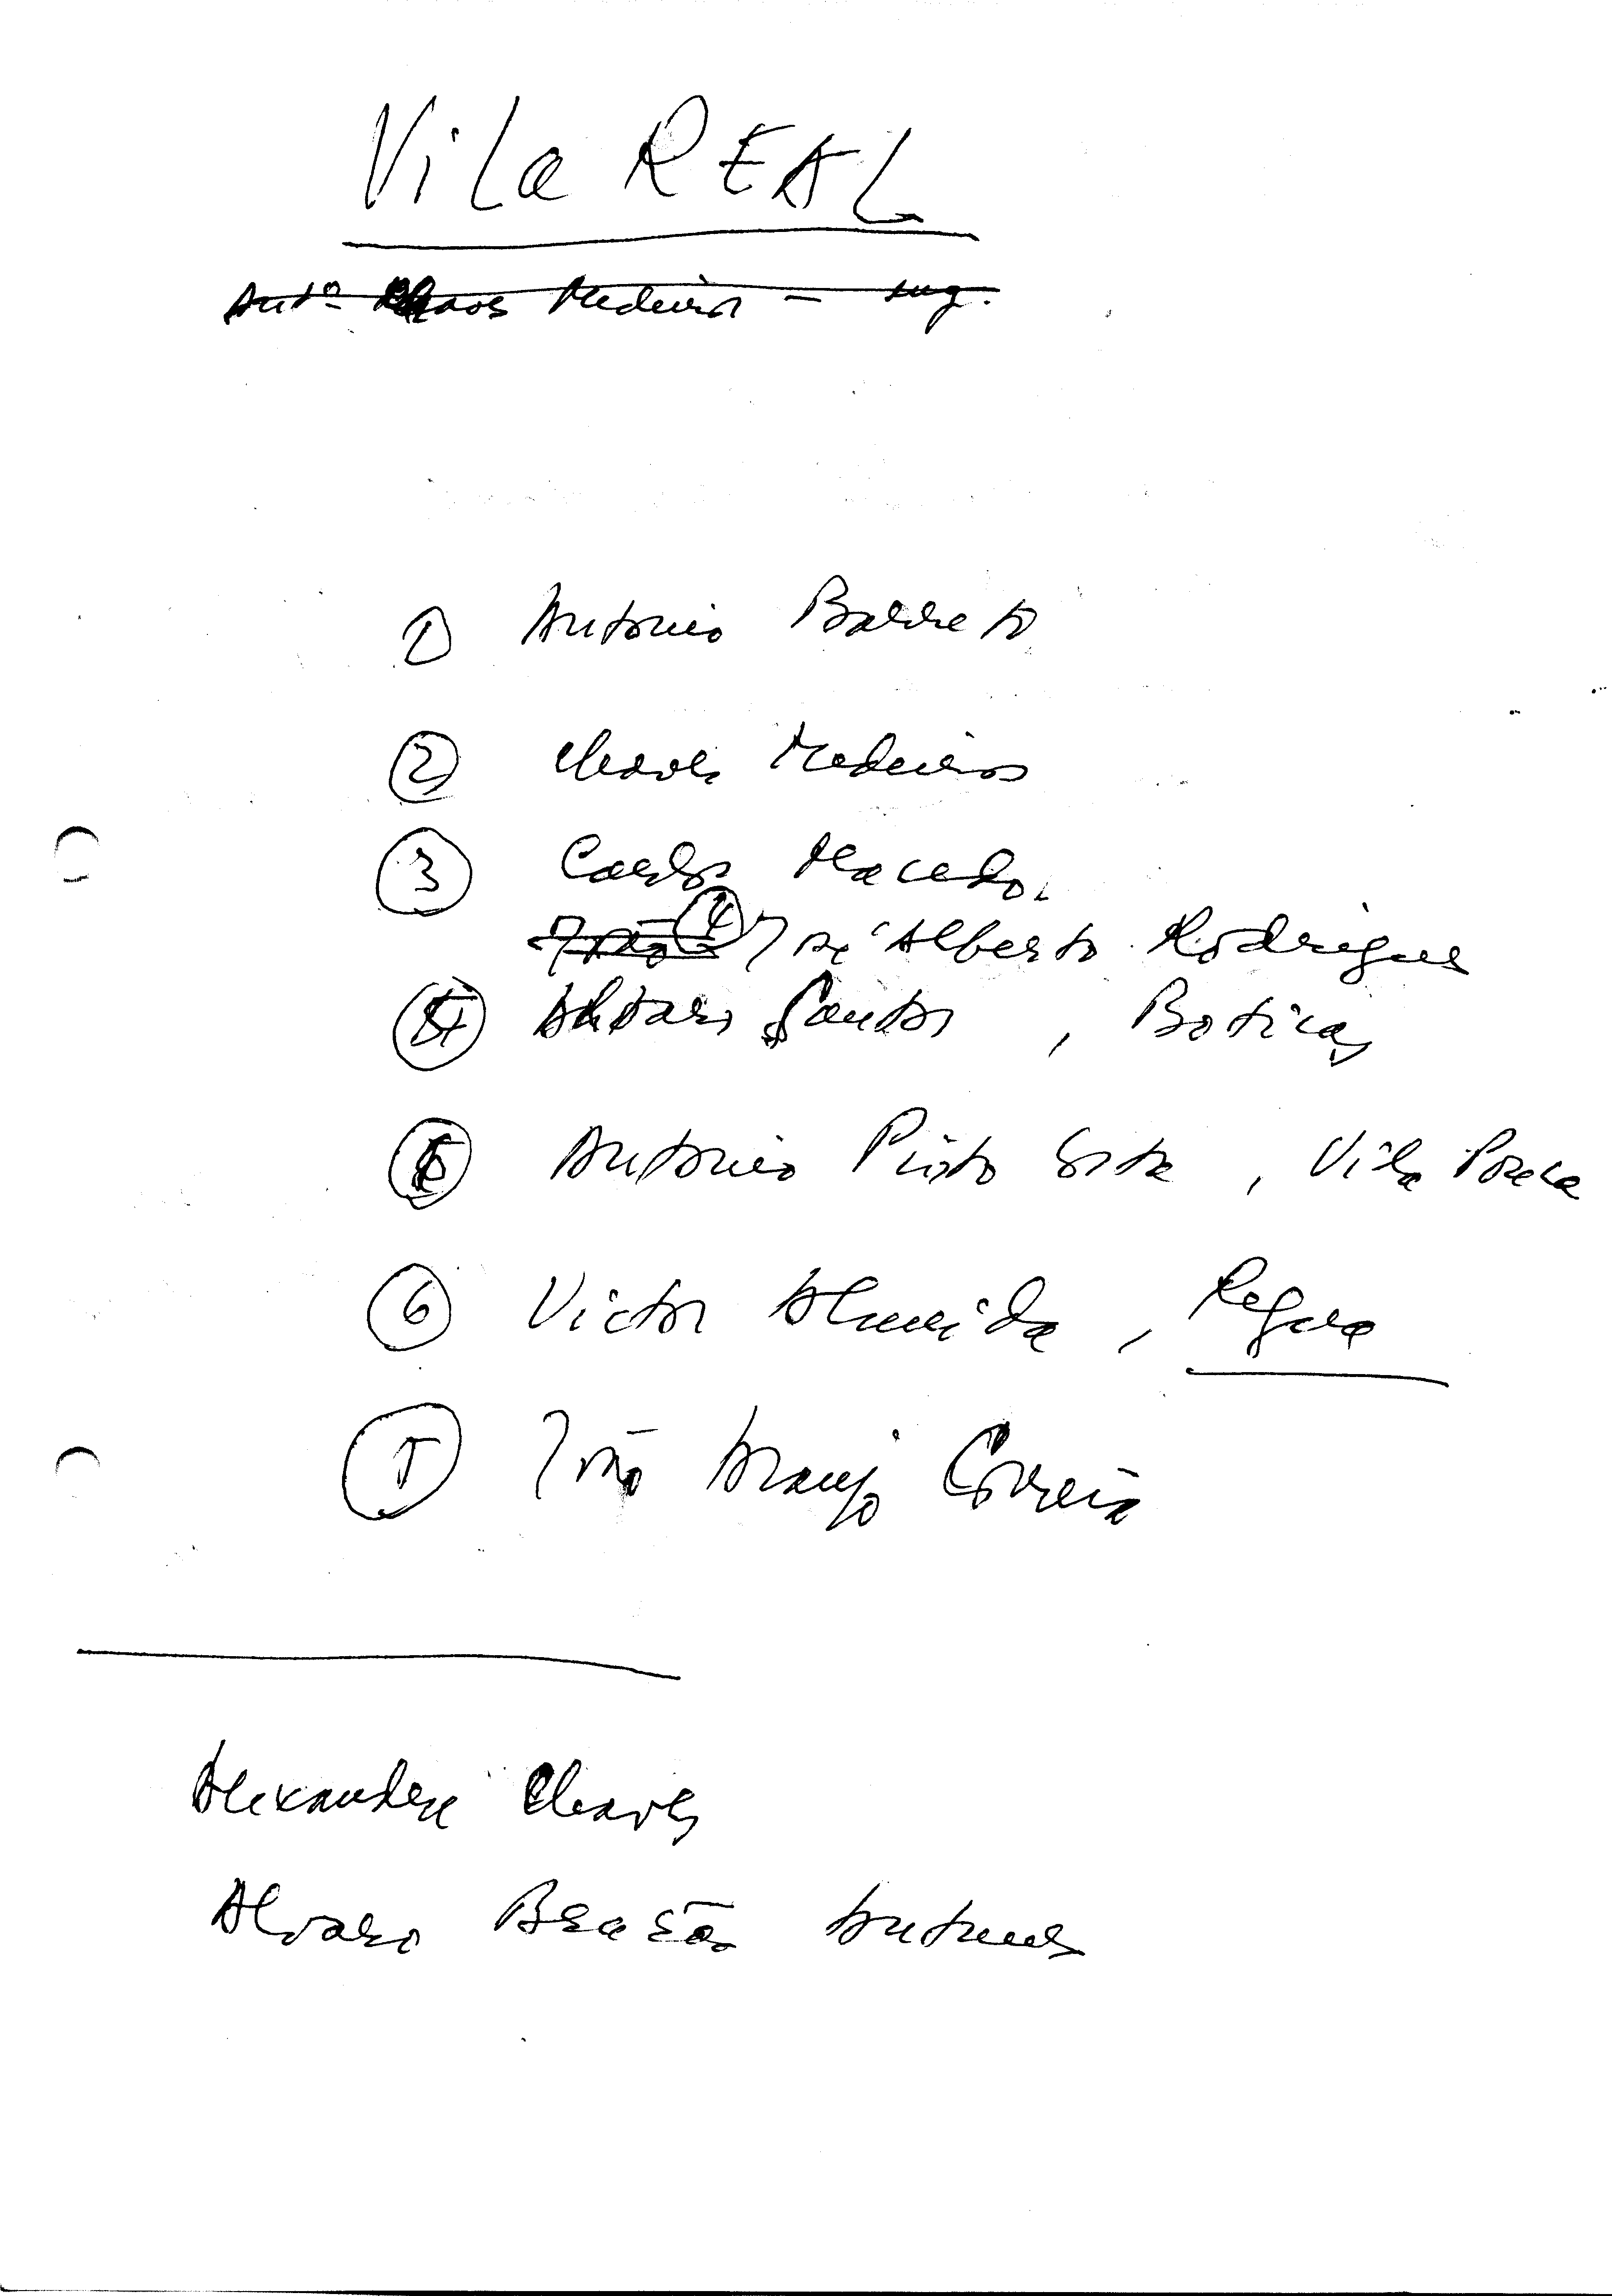 Vila REAL
Antº Chaves Medeiros - eng.
1 Antonio Barreto
2 Chaves Medeiros
3 Carlos Macedo.
4 José Alberto Rodrigues
Alvaro Santos, Boticas
Antonio Pinto Costa, Vila Pouca
6 Victor Almeida, Regua
João Araujo Correia
Alexandre Chaves
Alvaro Brazão Antunes